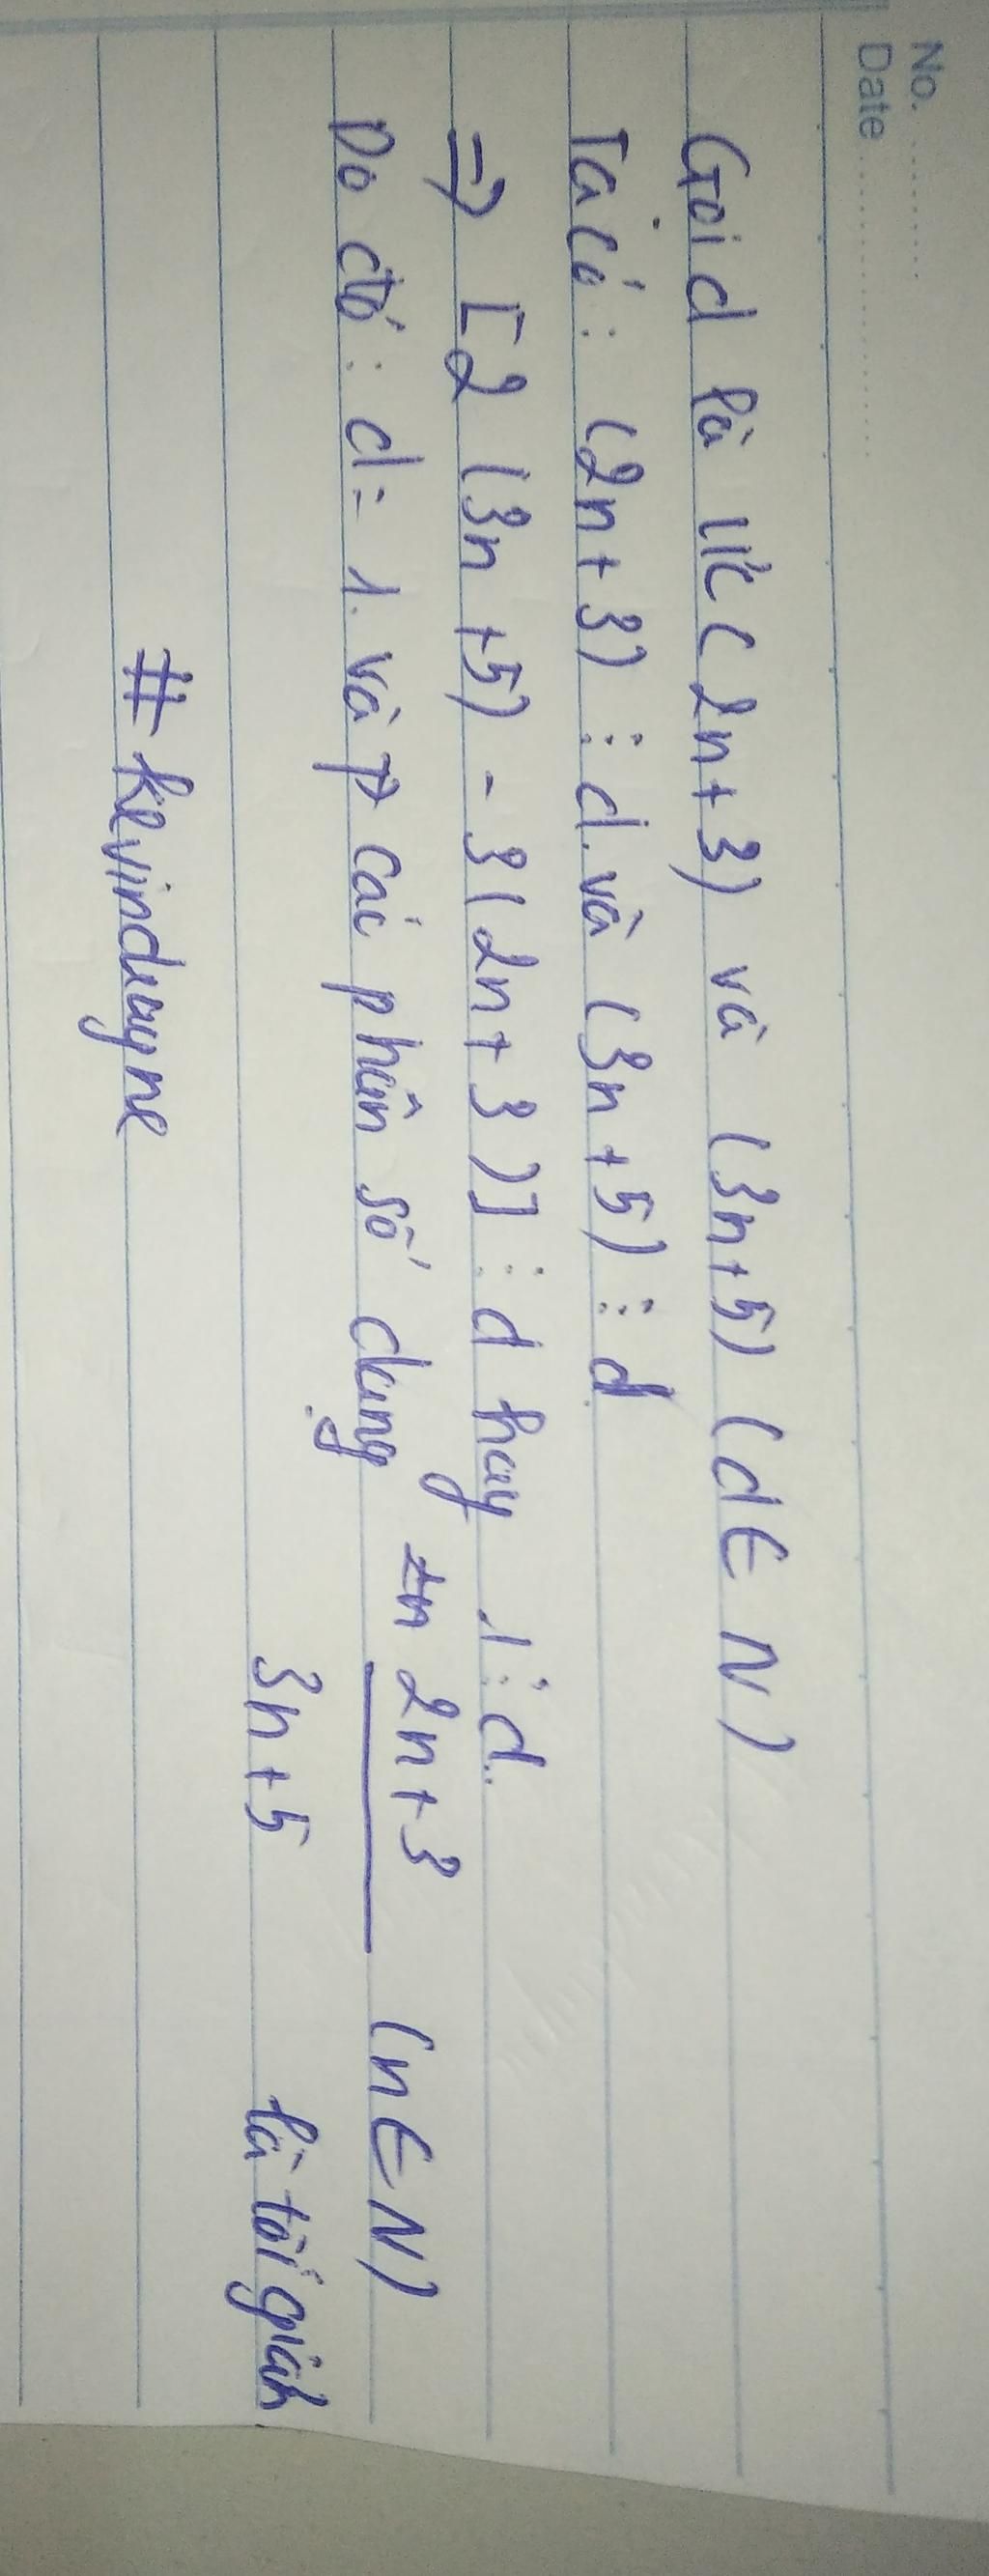 No. ..........
Date ....................
Gọi d là ƯC (2n+3) và (3n+5) (d∈N)
Ta có: (2n+3) ⋮ d và (3n+5) ⋮ d
=> [2 (3n+5) - 3(2n+3)] ⋮ d hay 1 ⋮ d.
Do đó: d = 1. và các phân số dạng 2n+3 (n∈N)
3n+5 là tối giản
#kevindwayne